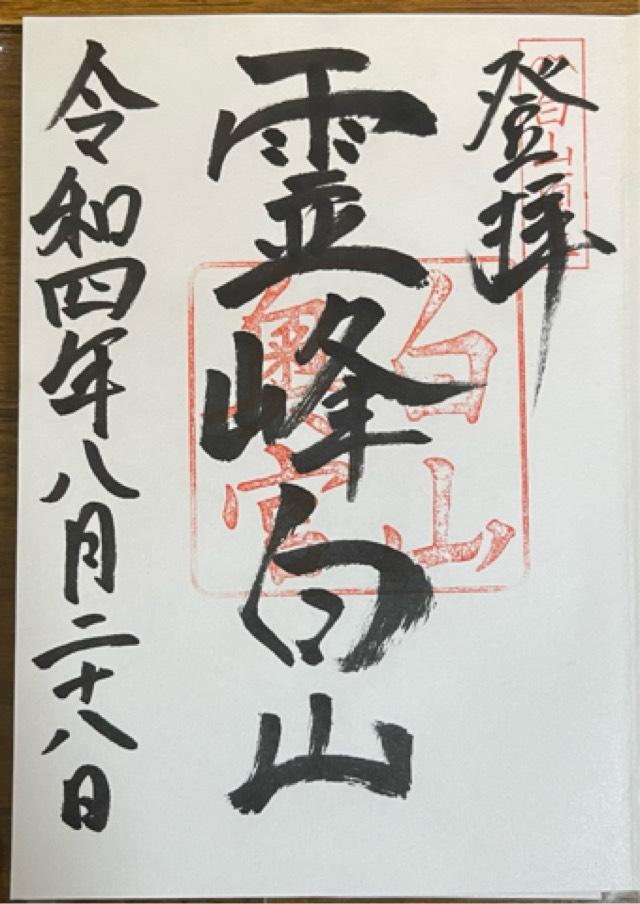 登拝
霊峰白山
白山
奥宮
令和四年八月二十八日